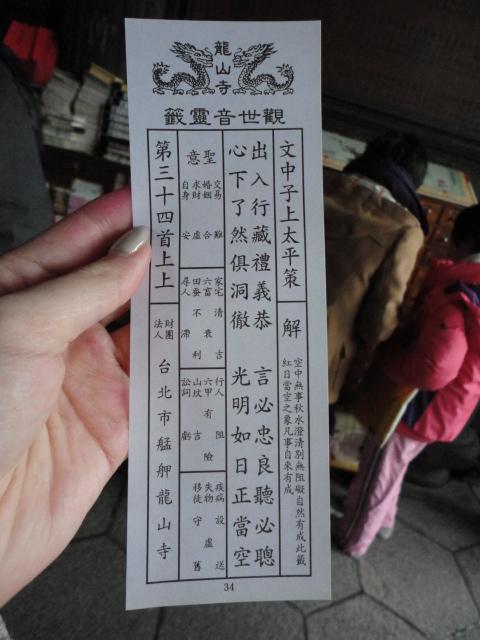 龍山寺
觀世音靈籤
文中子上太平策
解
空中無事秋水澄清別無阻礙自然有成此籤
紅日當空之象凡事自來有成
出入行藏禮義恭 言必忠良聽必聰
心下了然俱洞徹 光明如日正當空
聖意
交易 難
婚姻 合
求財 虛
自身 安
家宅 清吉
六畜 衰
田蠶 不利
尋人 滯
行人 阻
六甲 有險
山坟 吉
訟詞 虧
疾病 設送
失物 虛
移徙 守舊
第三十四首上上
財團法人
台北市艋舺龍山寺
34